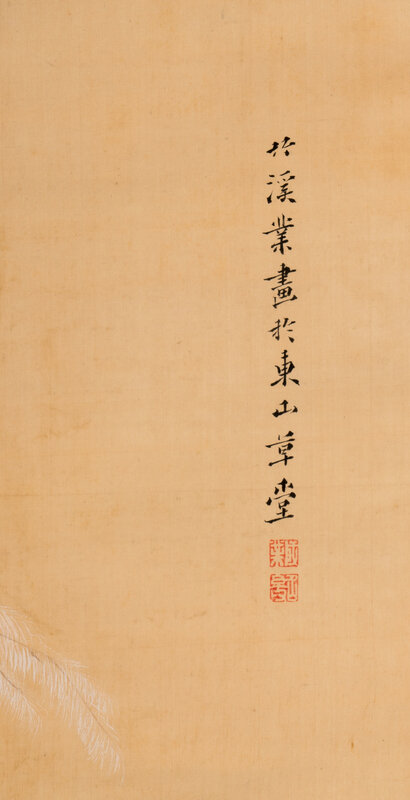 竹溪業畫於東山草堂